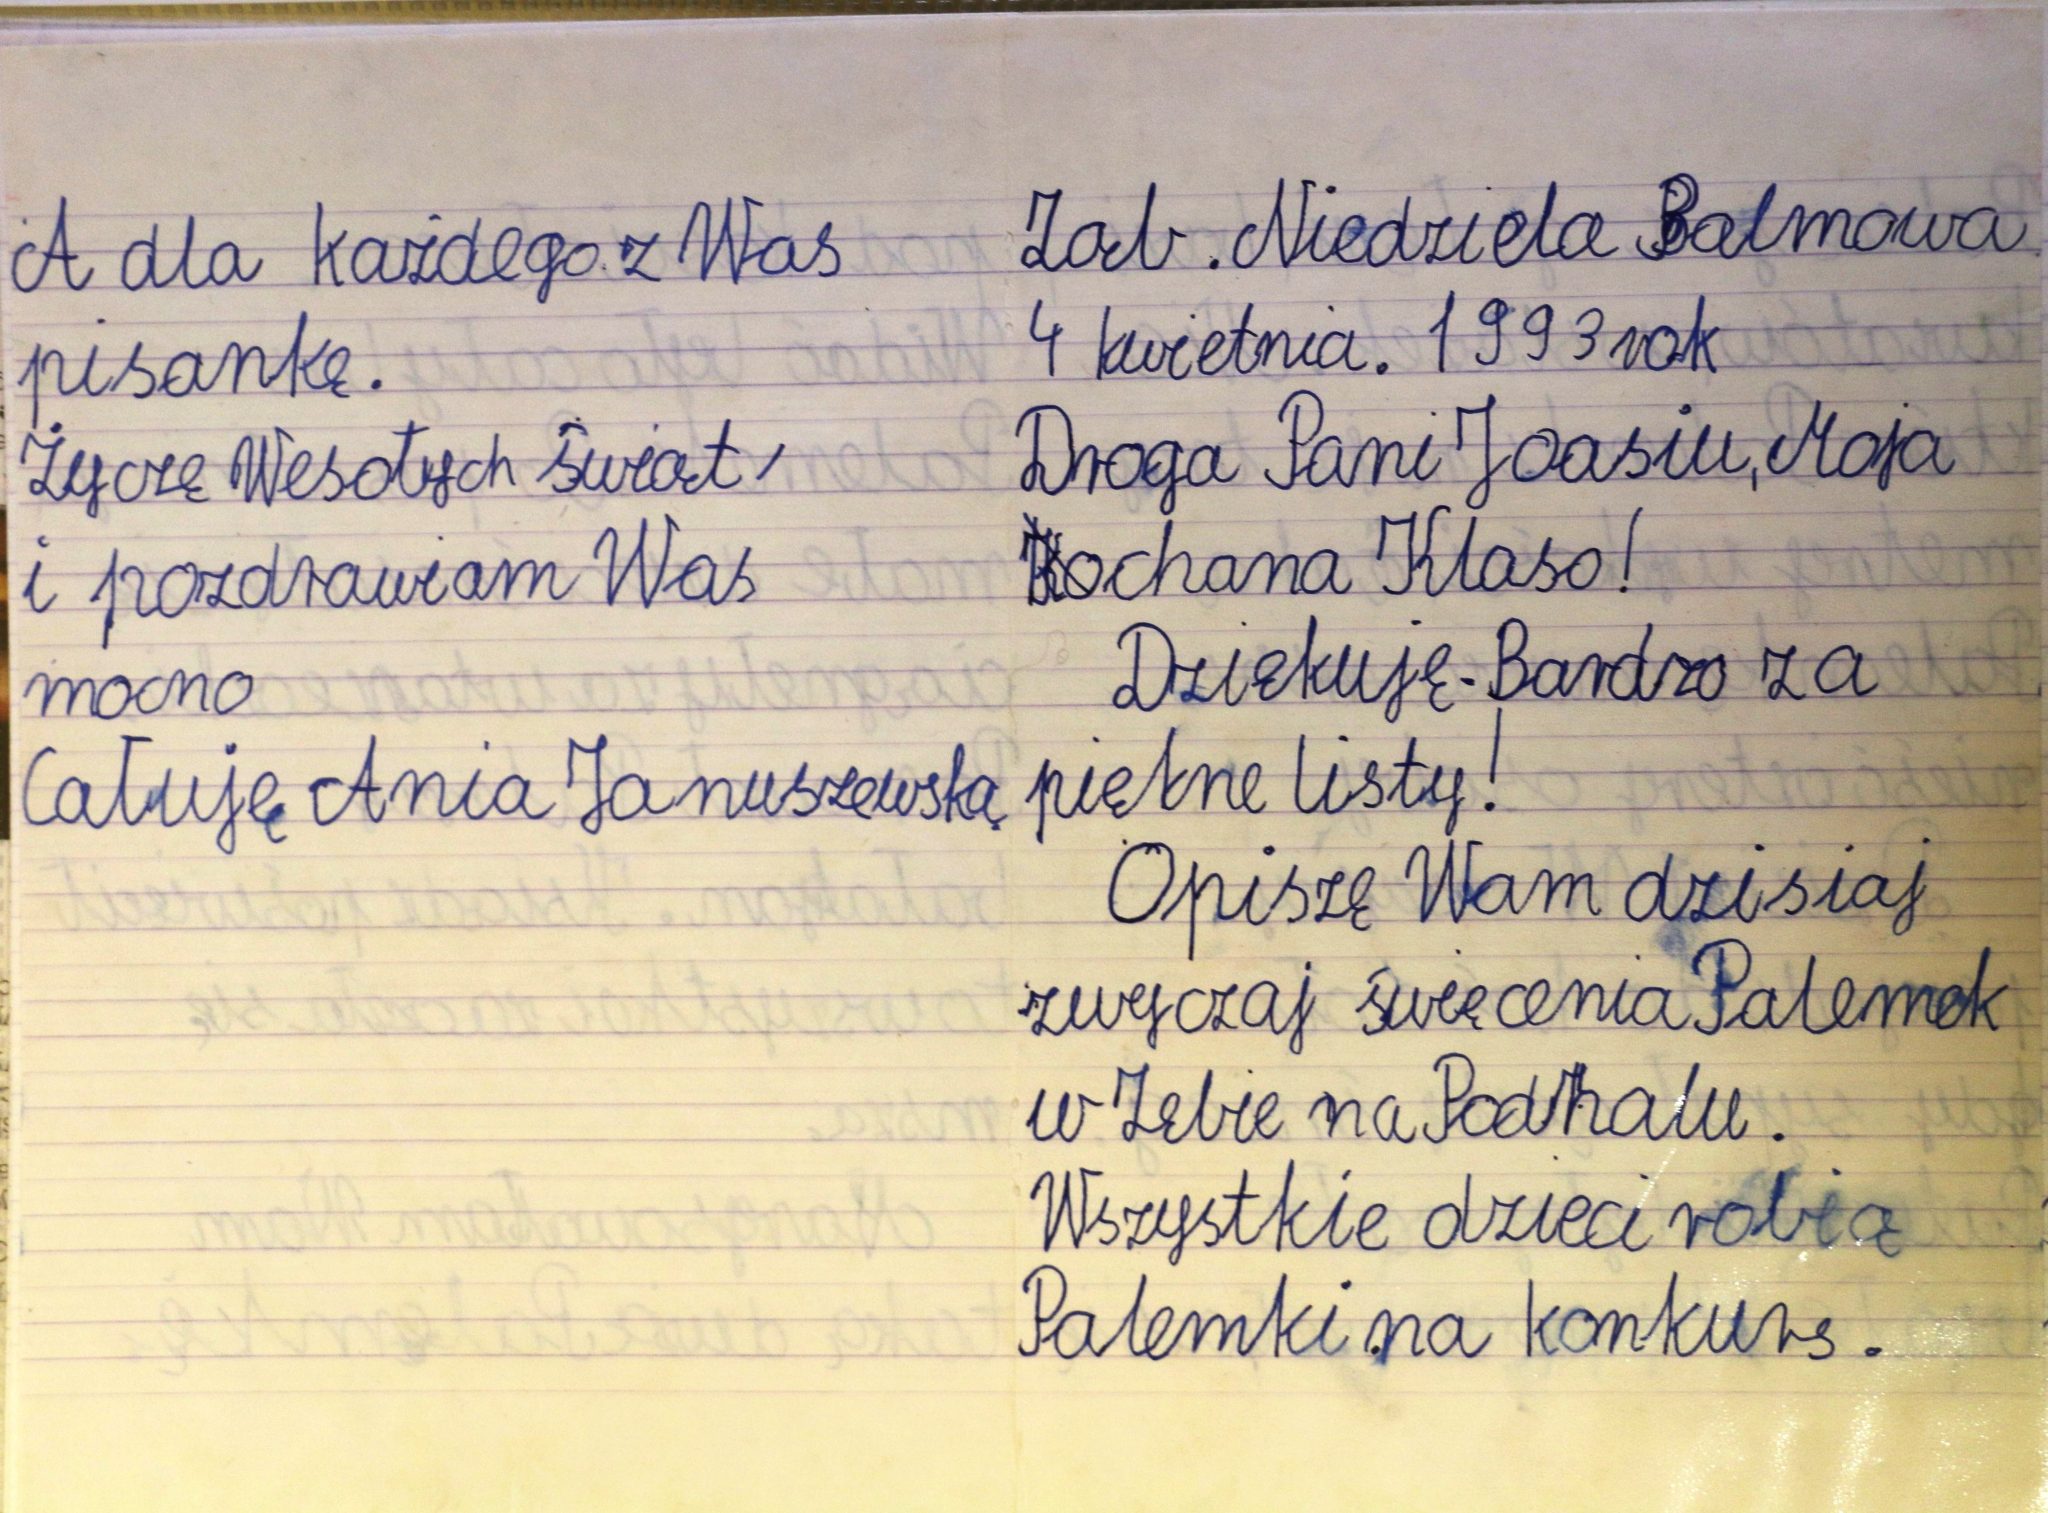 A dla każdego z Was
pisankę.
Życzę Wesołych Świąt,
i pozdrawiam Was
mocno
Całuję Ania Januszewską
Ząb. Niedziela Balmowa
4 kwietnia. 1993 rok
Droga Pani Joasiu, Moja
Kochana Klaso!
Dziękuję Bardzo za
piękne listy!
Opiszę Wam dzisiaj
zwyczaj święcenia Palemek
w Zębie na Podhalu.
Wszystkie dzieci robią
Palemki na konkurs.